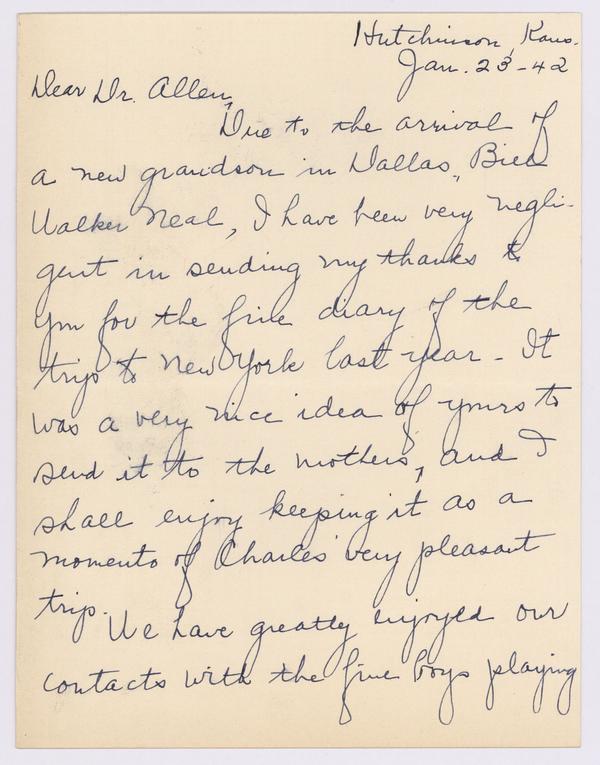 Hutchinson, Kans.
Jan. 23-42
Dear Dr. Allen,
Due to the arrival of
a new grandson in Dallas, Bill
Walker Neal, I have been very negli-
gent in sending my thanks to
you for the fine diary of the
trip to New York last year - It
was a very nice idea of yours to
send it to the mothers, and I
shall enjoy keeping it as a
momento of Charles' very pleasant
trip.
We have greatly enjoyed our
contacts with the fine boys playing